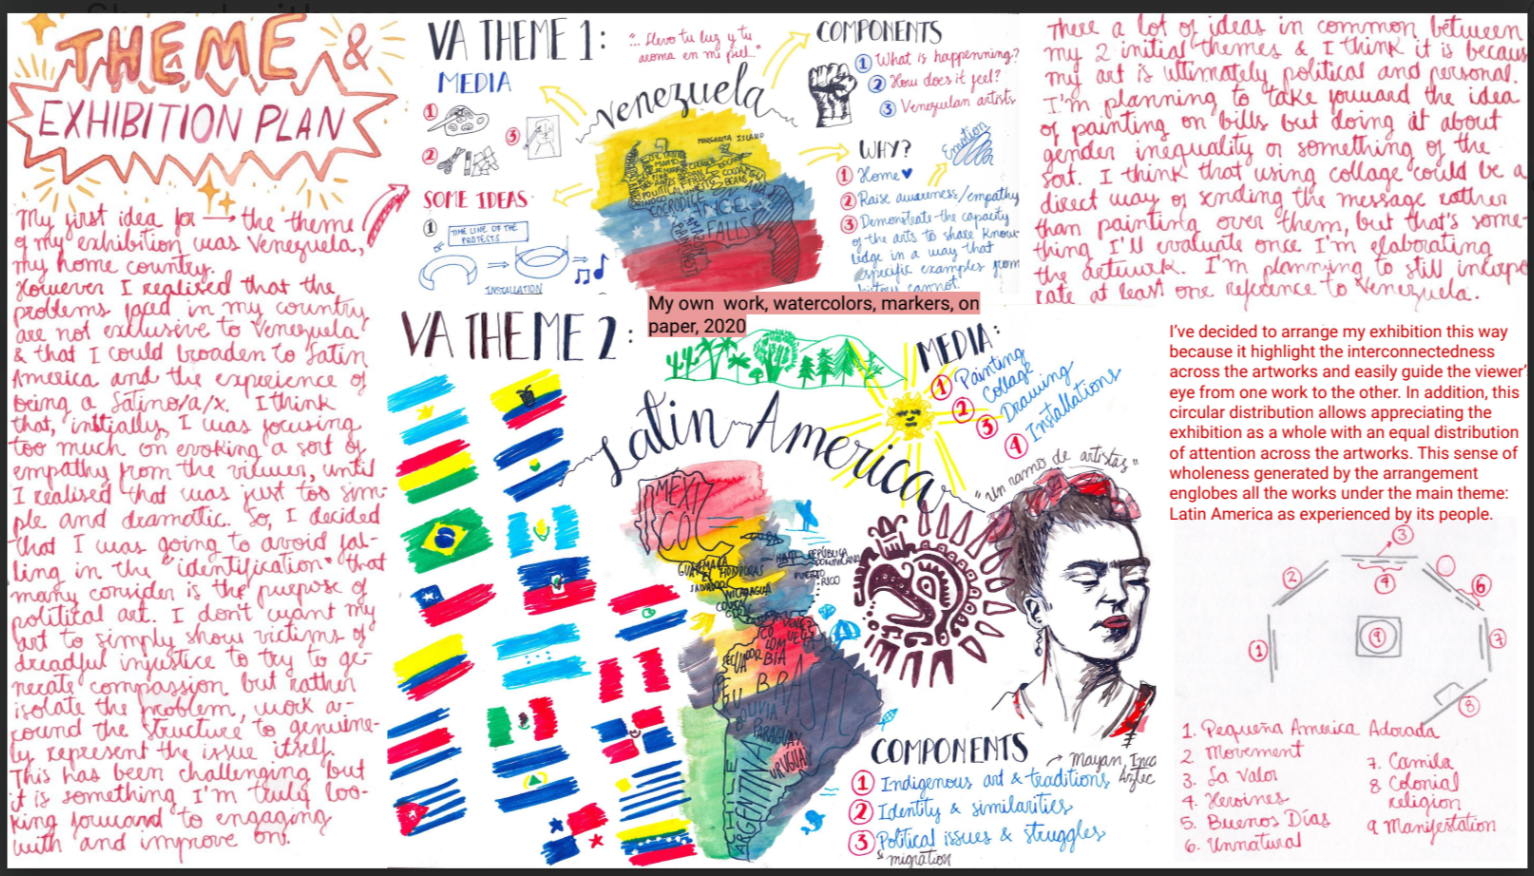 THEME &
EXHIBITION PLAN
My first idea for → the theme
of my exhibition was Venezuela,
my home country.
However I realised that the
problems faced in my country
are not exclusive to Venezuela
& that I could broaden to Latin
America and the experience of
being a Latino/a/x. I think
that, initially I was focusing
too much on evoking a sort of
empathy from the viewer, until
I realised that was just too sim-
ple and dramatic. So, I decided
that I was going to avoid fal-
ling in the "identification" that
many consider is the purpose of
political art. I don't want my
art to simply show victims of
dreadful injustice to try to ge-
nerate compassion but rather
isolate the problem, work a-
round the structure to genuine-
ly represent the issue itself.
This has been challenging but
it is something I'm truly loo-
king forward to engaging
with and improve on.
VA THEME 1:
"... llevo tu luz y tu
aroma en mi piel..."
Venezuela
MEDIA
1
2
3
SOME IDEAS
1 TIME LINE OF THE
PROTESTS
INSTALLATION
MARGARITA ISLAND
ANGEL
FALLS
COMPONENTS
1 What is happenning?
2 How does it feel?
3 Venezuelan artists
WHY?
Emotion
1 Home
2 Raise awareness/empathy
3 Demonstrate the capacity
of the arts to share know-
ledge in a way that
specific examples from
history cannot.
There a lot of ideas in common between
my 2 initial themes & I think it is becaus
my art is ultimately political and personal.
I'm planning to take forward the idea
of painting on bills but doing it about
gender inequality or something of the
sort. I think that using collage could be a
direct way of sending the message rather
than painting over them, but that's some-
thing I'll evaluate once I'm elaborating
the artwork. I'm planning to still incorpo
rate at least one reference to Venezuela.
My own work, watercolors, markers, on
paper, 2020
VA THEME 2:
Latin America
MEDIA:
1 Painting
2 Collage
3 Drawing
4 Installations
"Un ramo de artistas"
MEXICO
CUBA
HAITI
REPÚBLICA
DOMINICANA
PUERTO
RICO
GUATEMALA
HONDURAS
EL
SALVADOR
NICARAGUA
COSTA
RICA
COLOMBIA
ECUADOR
PERU
BRASIL
BOLIVIA
PARAGUAY
URUGUAY
CHILE
ARGENTINA
COMPONENTS
→ Mayan, Inca
Aztec
1 Indigenous art & traditions
2 Identity & similarities
3 Political issues & struggles
↳ migration
I've decided to arrange my exhibition this way
because it highlight the interconnectedness
across the artworks and easily guide the viewer'
eye from one work to the other. In addition, this
circular distribution allows appreciating the
exhibition as a whole with an equal distribution
of attention across the artworks. This sense of
wholeness generated by the arrangement
englobes all the works under the main theme:
Latin America as experienced by its people.
1
2
3
4
6
7
8
9
1. Pequeña America Adorada
2 Movement
3. La Valor
4. Heroines
5. Buenos Días
6. Unnatural
7. Camila
8 Colonial
religion
9 Manifestation